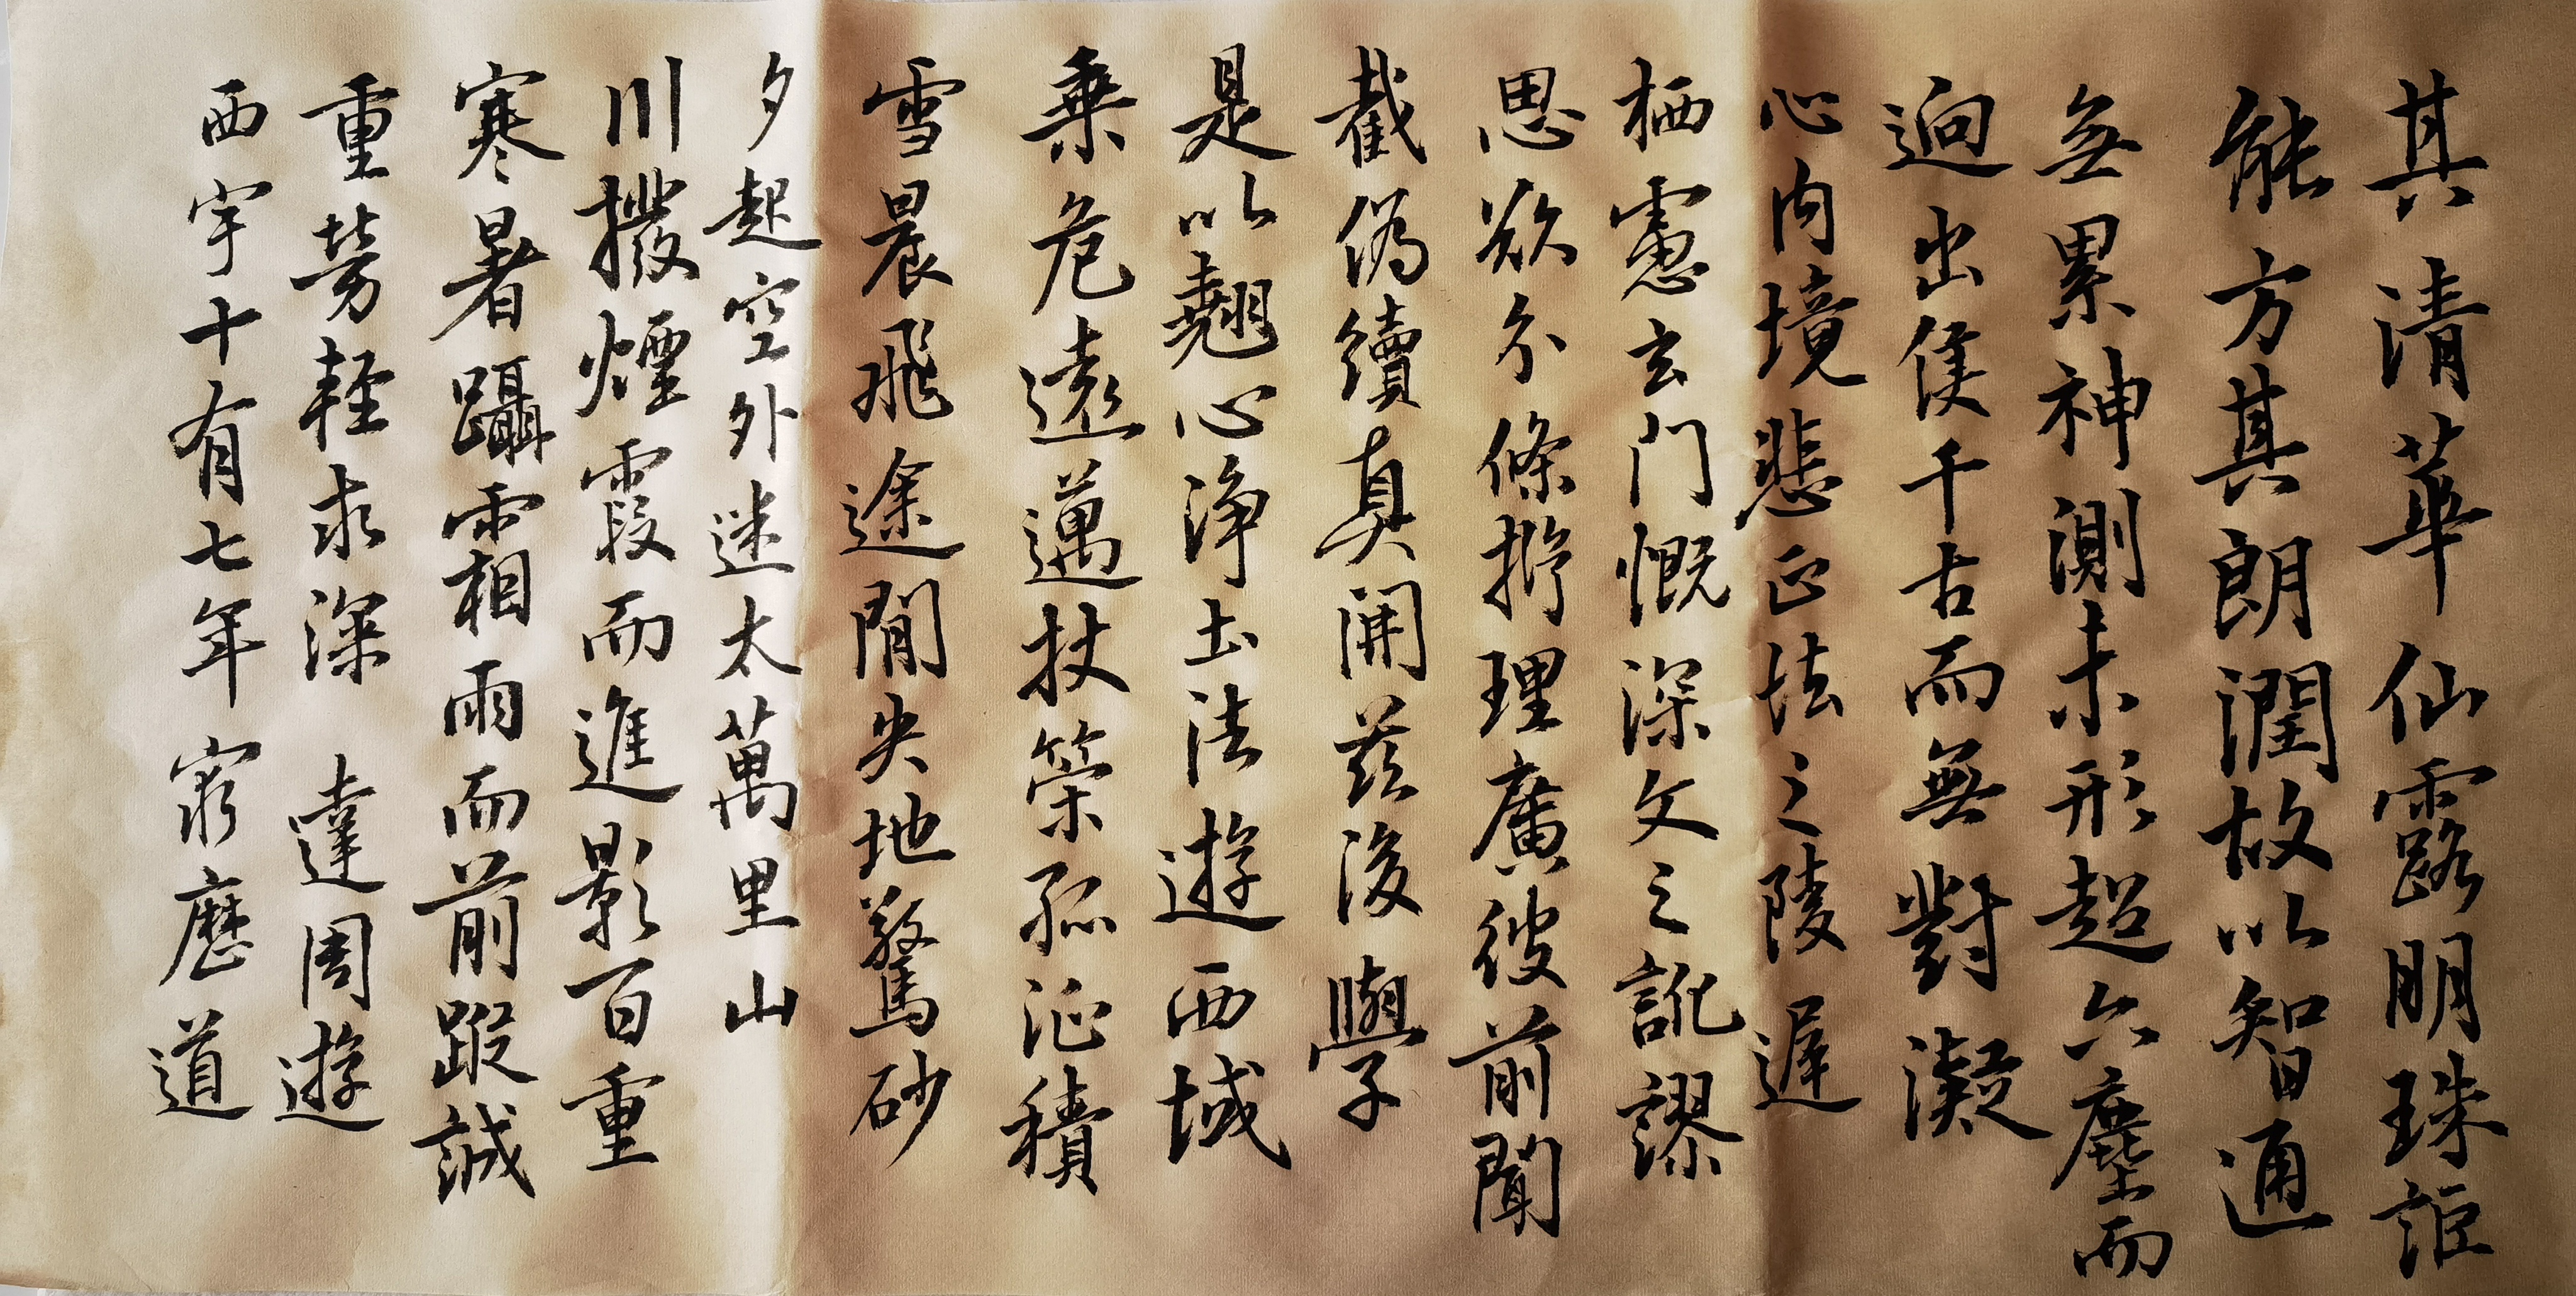 其清華仙露明珠詎
能方其朗潤故以智通
無累神測未形超六塵而
迥出隻千古而無對凝
心內境悲正法之陵遲
栖慮玄門慨深文之訛謬
思欲分條析理廣彼前聞
截偽續真開茲後學
是以翹心淨土法遊西域
乘危遠邁杖策孤征積
雪晨飛途閒失地驚砂
夕起空外迷太萬里山
川撥煙霞而進影百重
寒暑躡霜雨而前蹤誠
重勞輕求深 達周遊
西宇十有七年 窮歷道